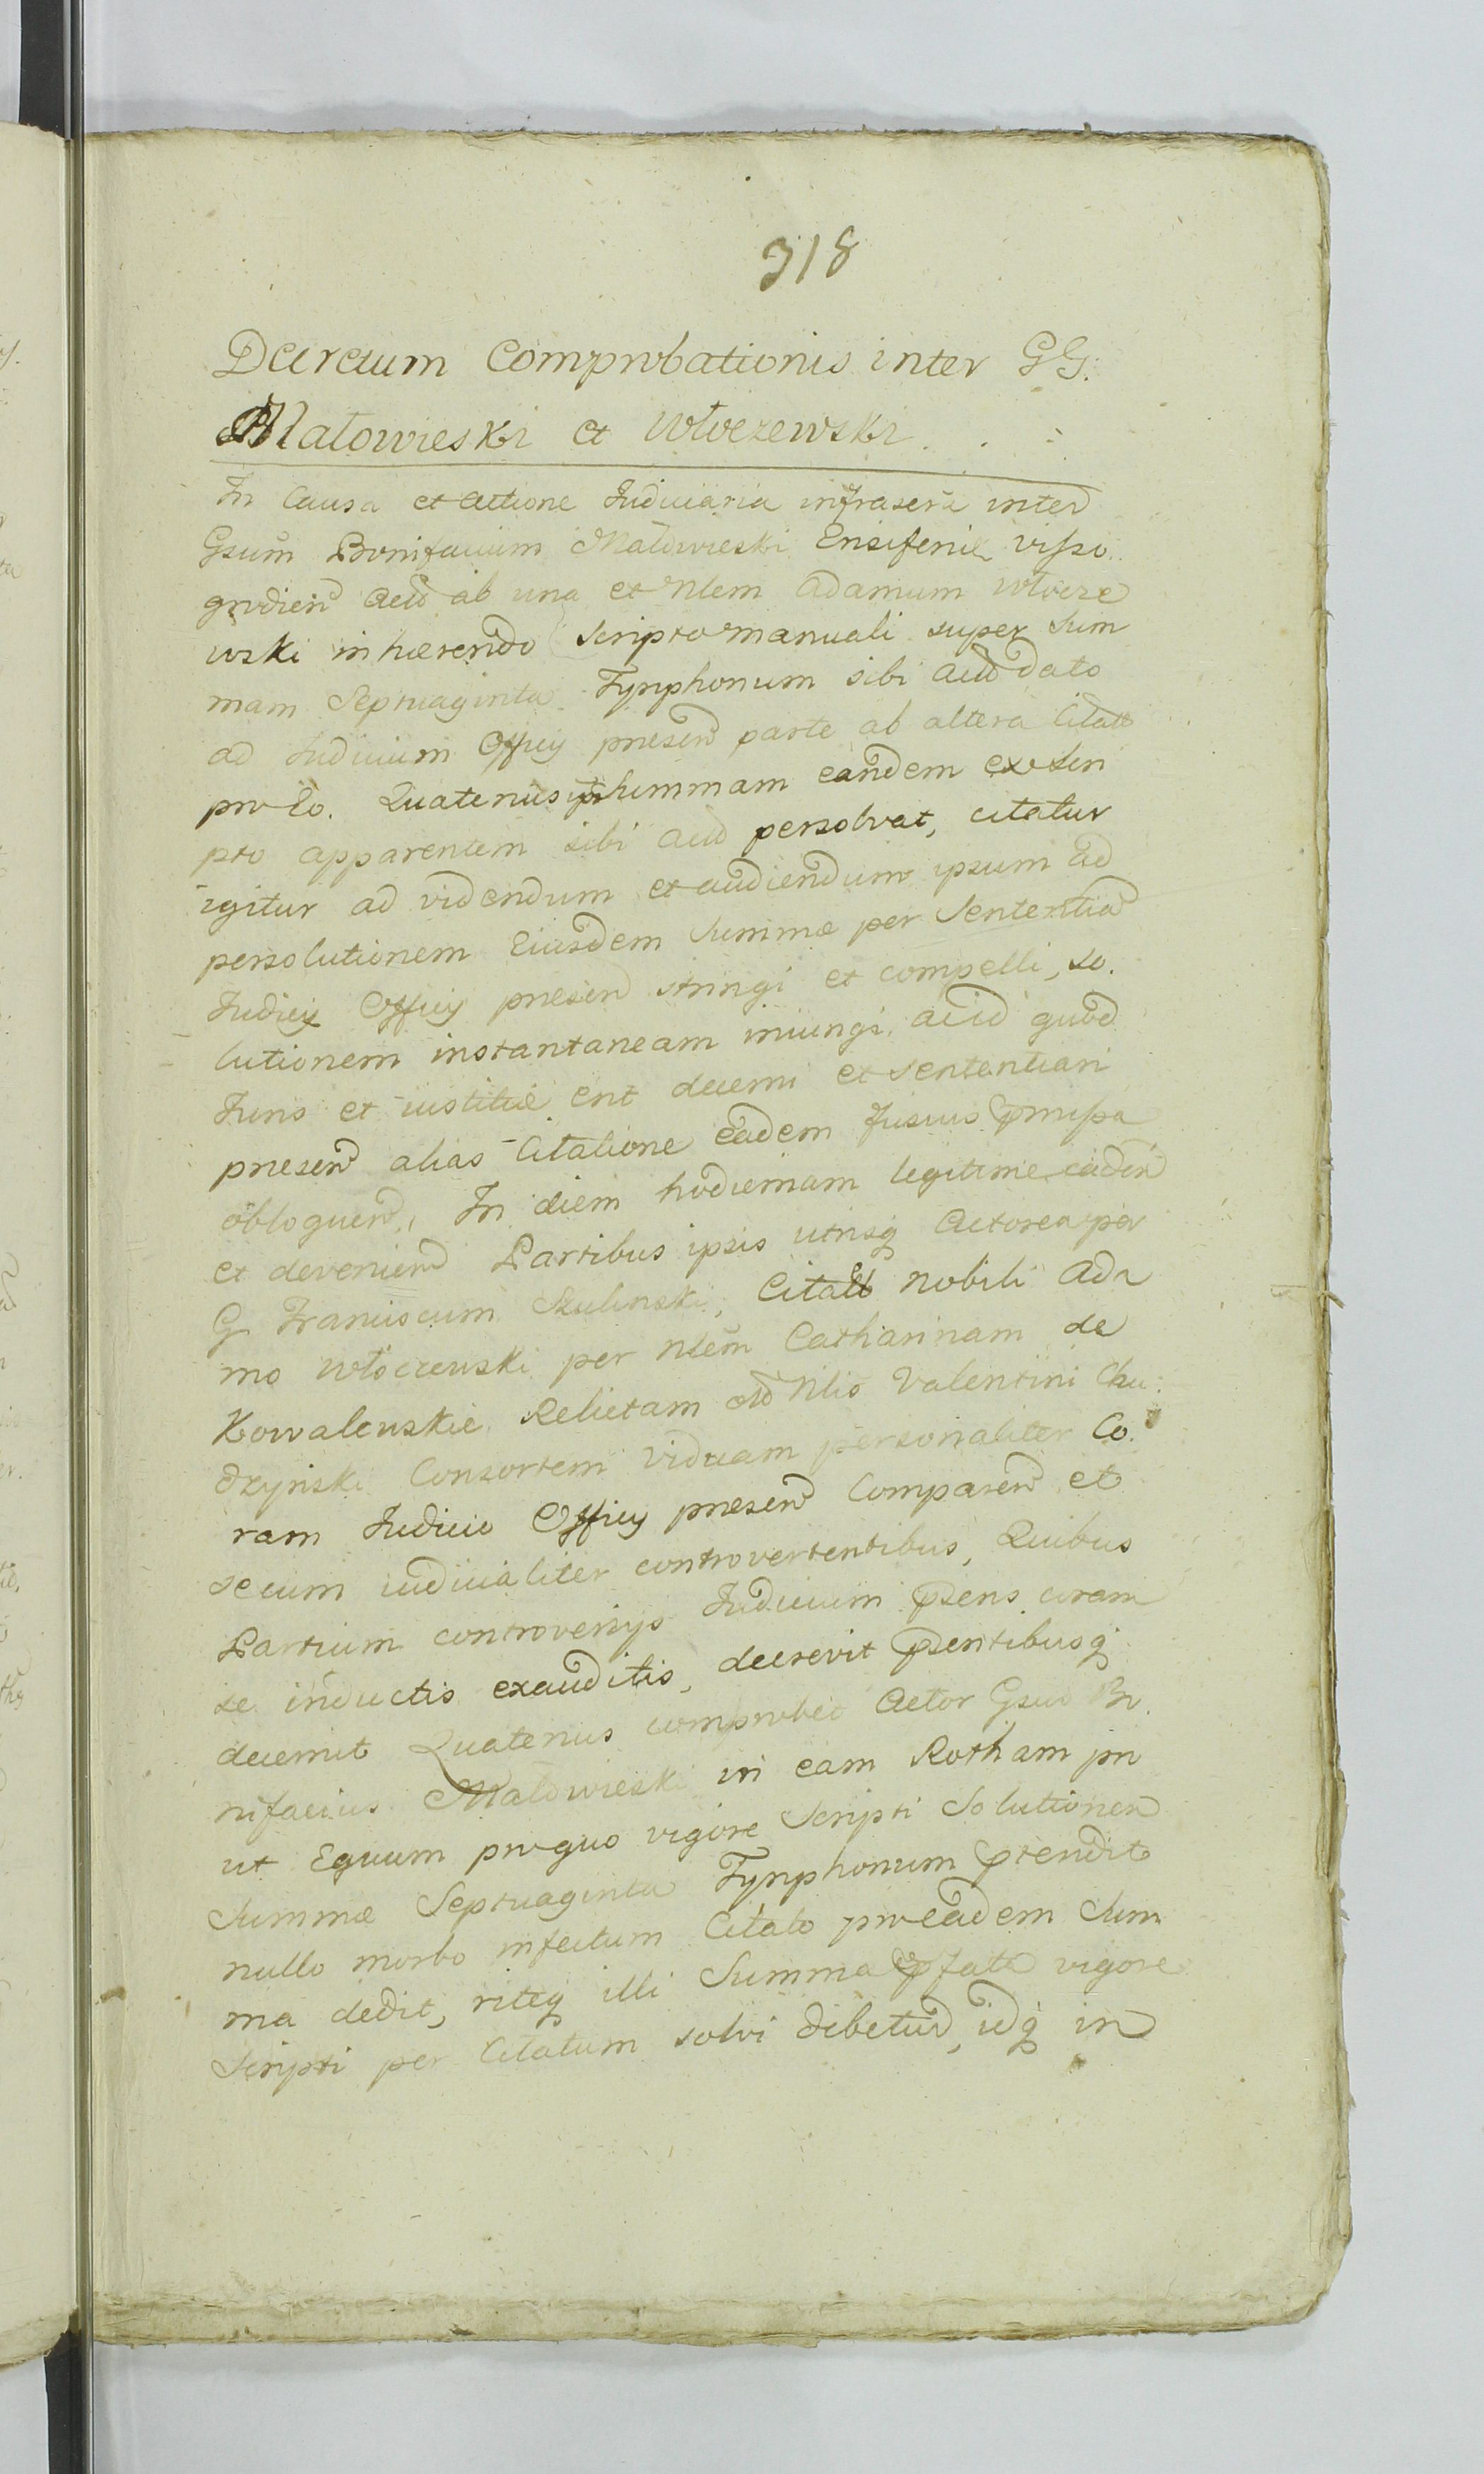 318
Decretum Comprobationis inter GG.
Małowieski et Włoczewski
In Causa et actione Iudiciaria infrascra inter
Gsum Bonifacium Małowieski Ensiferiū Visso
grodien Actō ab una et Nlem Adamum Włocze
wski inhærendo Scripto manuali super Sum
mam Septuaginta Tynphonum sibi Actō dato
ad Iudicium Officij præsen parte ab altera Citatō
pro Eo. Quatenus Summam eandem ex Scri
pto apparentem sibi Actō persolvat, citatur
igitur ad videndum et audiendum ipsum ad
persolutionem Eiusdem Summæ per Sententiā
Iudicij Officij præsen stringi et compelli, so
lutionem instantaneam iniungi, aliud quod
Iuris et iustitiæ erit decerni et sententiari
præsen alias Citatione eadem fusius præmissa
obloquen, In diem hodiernam legitime caden
et devenien Partibus ipsis utrisq Actorea per
G. Franciscum Skulinski, Citatō nobili Ada
mo Włoczewski per Nlem Catharinam de
Kowalewskie Relictam olō Nlis Valentini Chu
dzynski Consortem Viduam personaliter Co
ram Iudicio Officij præsen Comparen et
secum iudicialiter controvertentibus, Quibus
Partium controversijs Iudicium præsens coram
se inductis exauditis, decrevit præsentibusq
decernit Quatenus comprobet Actor Gsus Bo
nifacius Małowieski in eam Rotham pro
ut Equum pro quo vigore Scripti Solutionem
Summæ Septuaginta Tynphonum prætendit
nullo morbo infectum Citato pro eadem Sum
ma dedit, riteq illi Summa præfata vigore
Scripti per Citatum solvi debetur, idq in